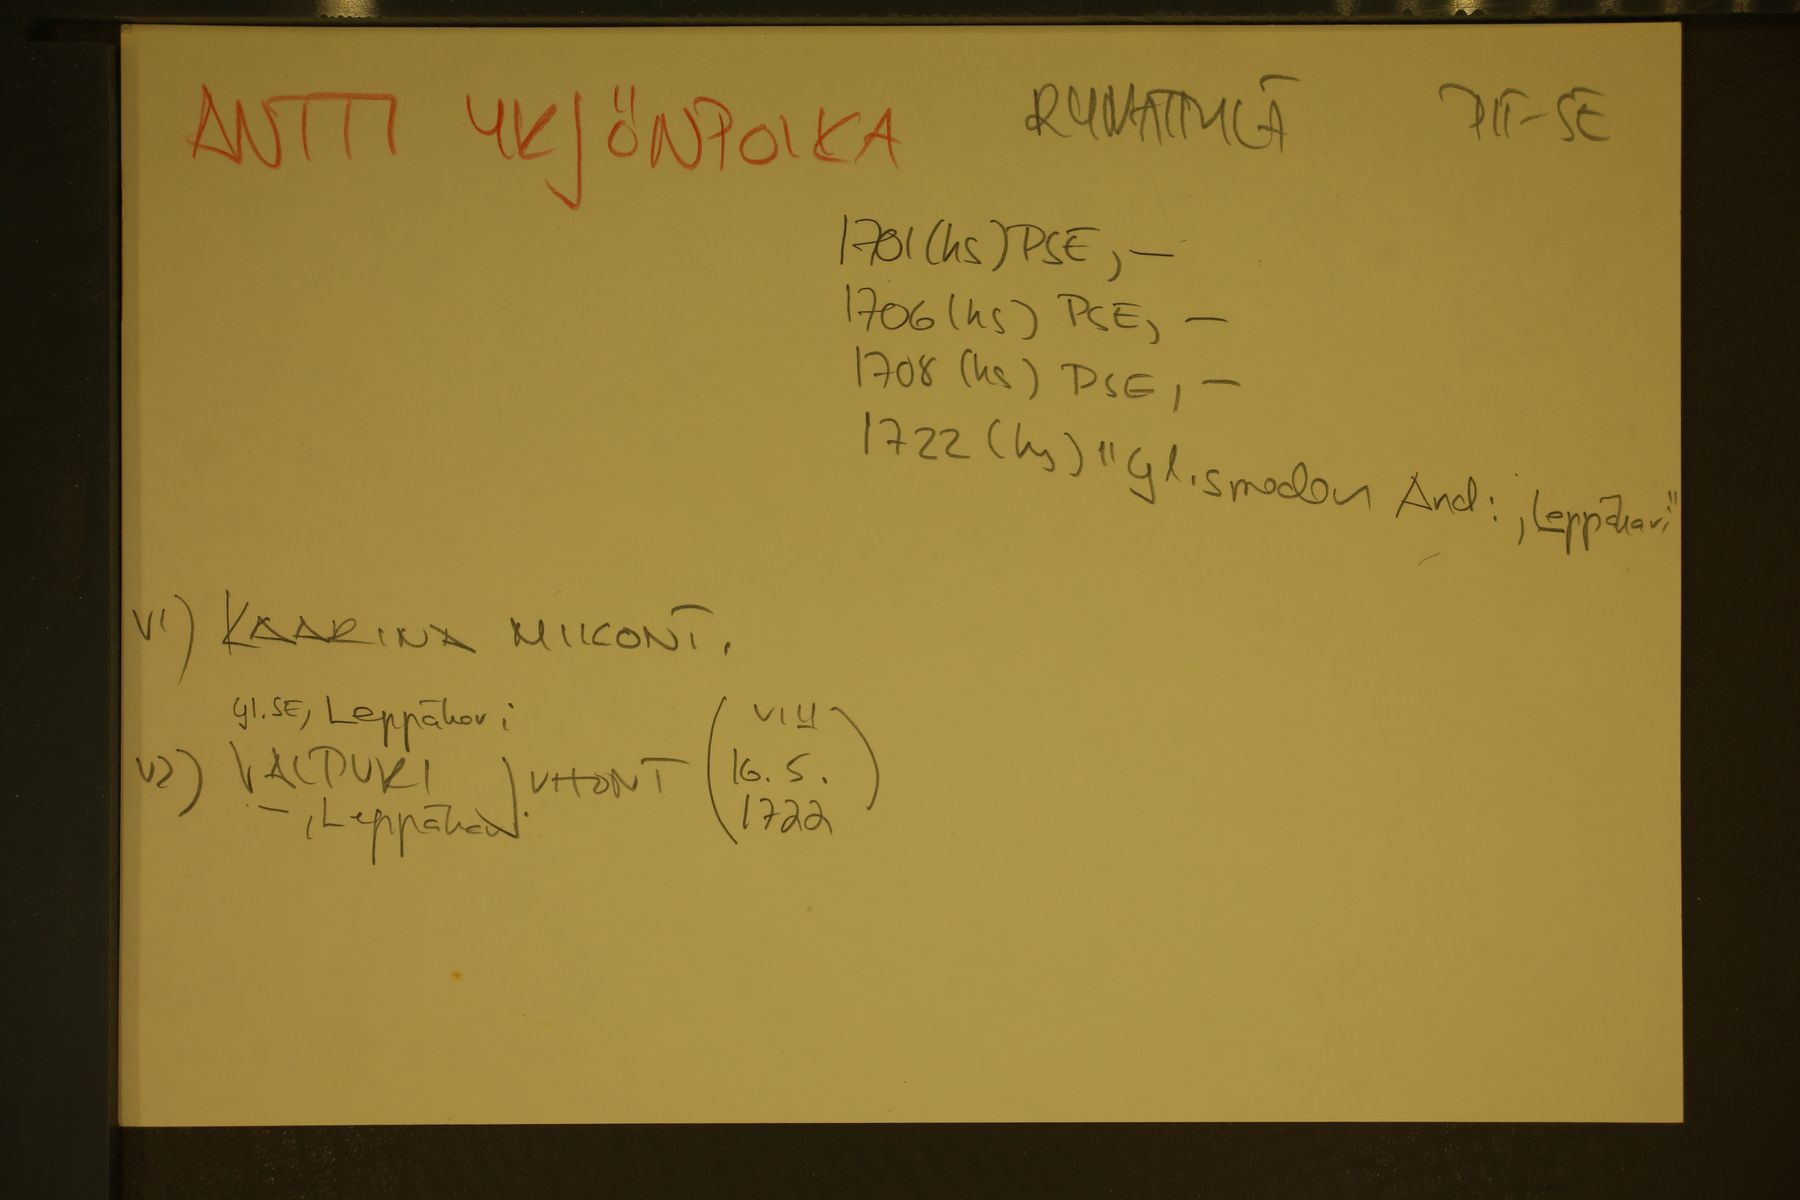 ANTTI YRJÖNPOIKA RYMÄTTYLÄ PIT-SE
1701 (hs) PSE, —
1706 (hs) PSE, —
1708 (hs) PSE, —
1722 (hs) "gl. smeden And: , Leppäkari"
V1) KAARINA MIKONT.
gl. SE, Leppäkari
V2) VALPURI JUHONT (VIH
—, Leppäkari 16.5.
1722)